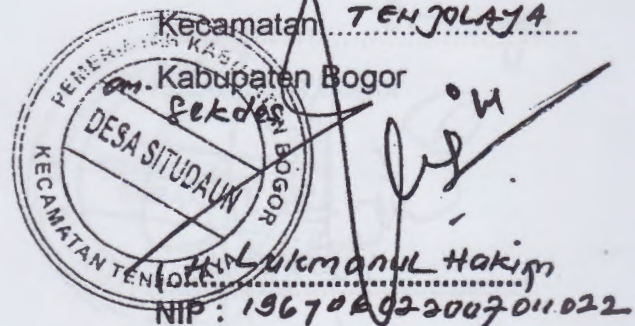 Kecamatan TENJOLAYA
Kabupaten Bogor
an. Sekdes
PEMERINTAH KABUPATEN BOGOR
DESA SITUDAUN
KECAMATAN TENJOLAYA
H. Lukmanul Hakim
NIP :